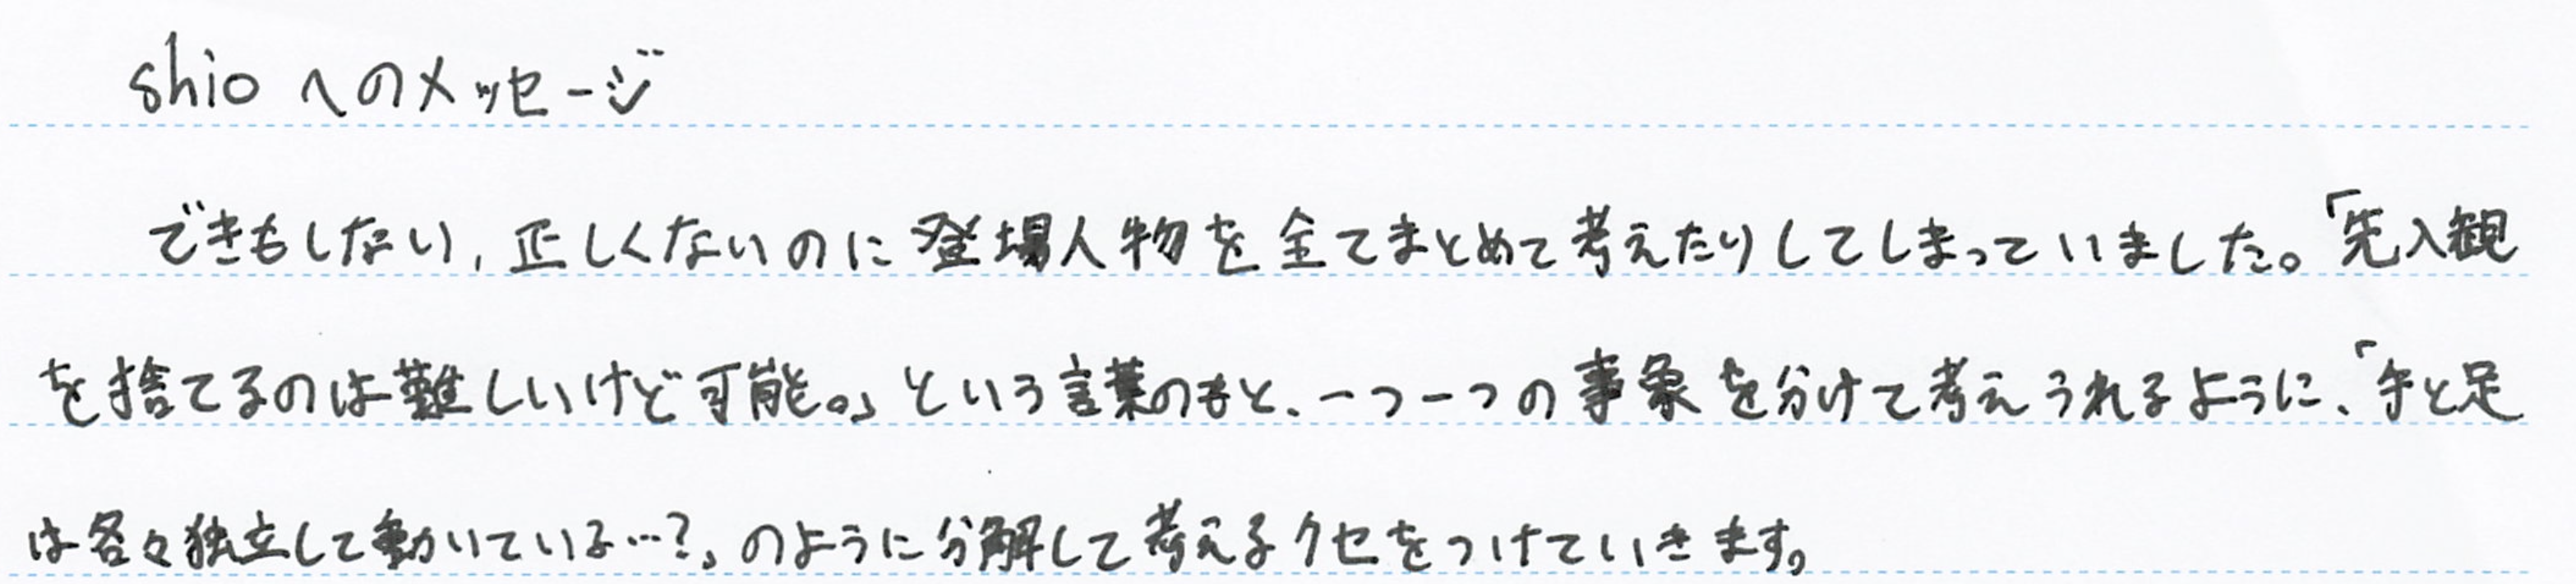 shioへのメッセージ
できもしない，正しくないのに登場人物を全てまとめて考えたりしてしまっていました。「先入観
を捨てるのは難しいけど可能。」という言葉のもと、一つ一つの事象を分けて考えうれるように、「手と足
は各々独立して動いている…?」のように分解して考えるクセをつけていきます。